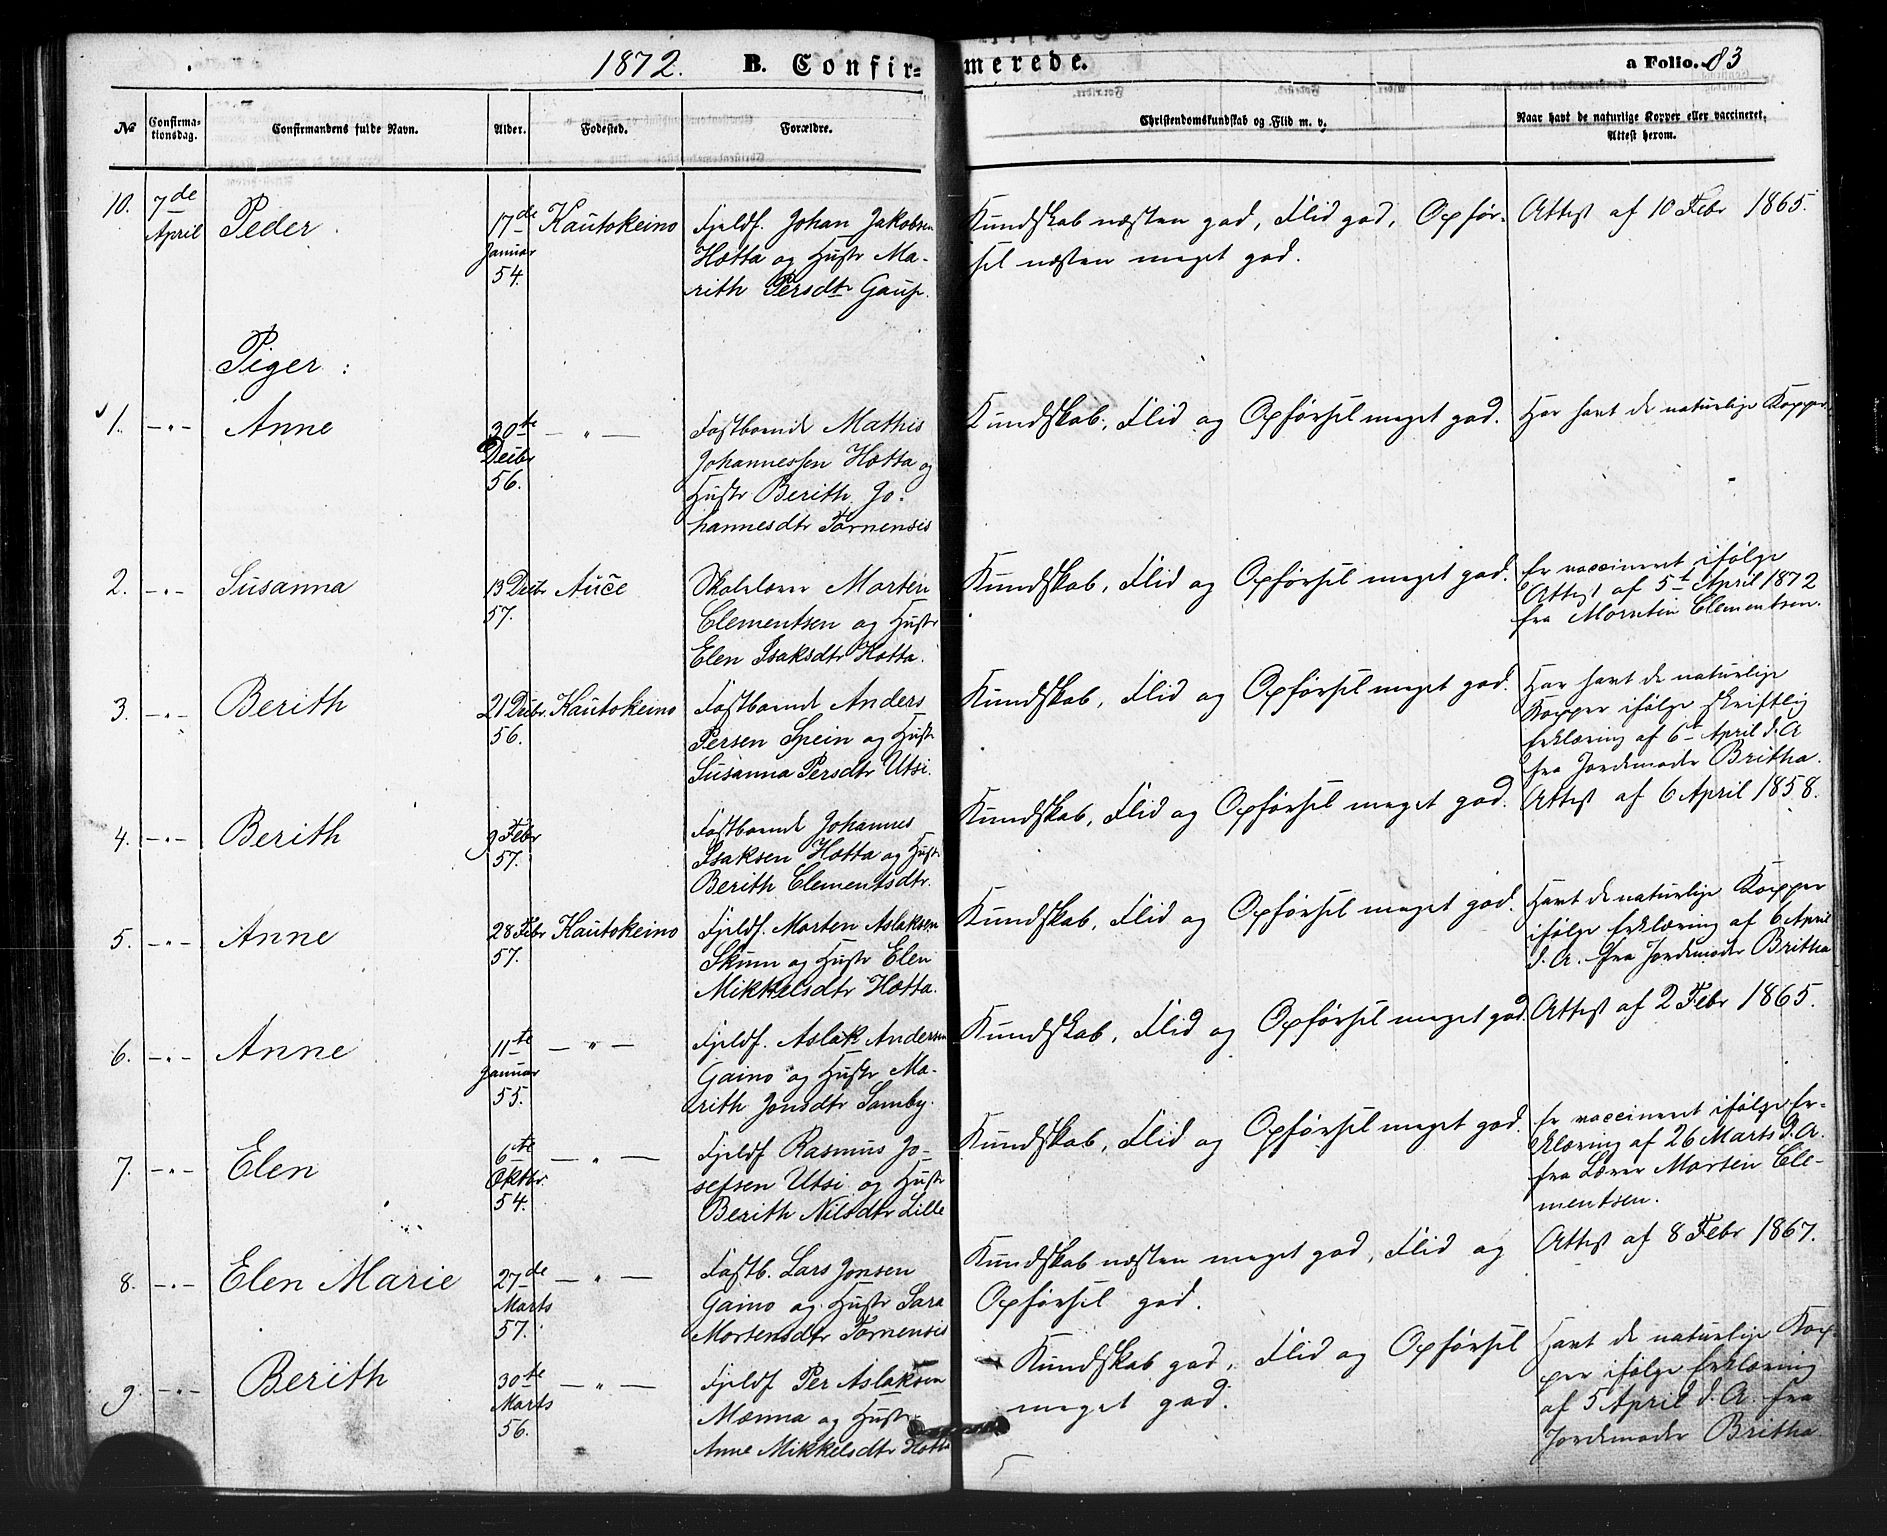 1872. B. Confirmerede. a Folio. 83
№ Confirmationsdag. Confirmandens fulde Navn. Alder. Fødested. Forældre. Christendomskundskab og Flid m. v. Naar havt de naturlige Kopper eller vaccineret, Attest herom.
10. 7de April Peder 17de Januar 54. Kautokeino
Fjeldf. Johan Jakobsen
Hætta og Hustr Ma-
rith Persdtr Gaup.
Kundskab næsten god, Flid god, Opfør-
sel næsten meget god.
Attest af 10 Febr 1865.
Piger:
1. -"- Anne 30te Decbr 56. -"-
Fastboende Mathis
Johannessen Hætta og
Hustr Berith Jo-
hannesdtr Tornensis
Kundskab, Flid og Opførsel meget god.
Har havt de naturlige Kopper.
2. -"- Susanna 13 Decbr 57. Aúce
Skolelærer Morten
Clementsen og Hustr
Elen Isaksdtr Hætta.
Kundskab, Flid og Opførsel meget god.
Er vaccineret ifølge
Attest af 5t April 1872
fra Morten Clementsen.
3. -"- Berith 21 Decbr. 56. Kautokeino
Fastboende Anders
Persen Spein og Hustr
Susanna Persdtr Utsi.
Kundskab, Flid og Opførsel meget god.
Har havt de naturlige
Kopper ifølge skriftlig
Erklæring af 6t April d. A
fra Jordemoder Britha.
4. -"- Berith 9 Febr 57.
Fastboende Johannes
Isaksen Hætta og Hustr
Berith Clementsdtr.
Kundskab, Flid og Opførsel meget god.
Attest af 6 April 1858.
5. -"- Anne 28 Febr 57. Kautokeino
Fjeldf. Morten Aslaksen
Skum og Hustr Elen
Mikkelsdtr Hætta.
Kundskab, Flid og Opførsel meget god.
Havt de naturlige Kopper
ifølge Erklæring af 6 April
d. A. fra Jordemoder Britha
6. -"- Anne 11te Januar 55. -"-
Fjeldf. Aslak Andersen
Gaino og Hustr Ma-
rith Jonsdtr Samby.
Kundskab, Flid og Opførsel meget god.
Attest af 2 Febr 1865.
7. -"- Elen 6te Oktbr. 54. -"-
Fjeldf Rasmus Jo-
sefsen Utsi og Hustr
Berith Nilsdtr Lille
Kundskab, Flid og Opførsel meget god.
Er vaccineret ifølge Er-
klæring af 26 Marts d. A.
fra Lærer Morten Cle-
mentsen.
8. -"- Elen Marie 27de Marts 57. -"-
Fastb. Lars Jonsen
Gaino og Hustr Sara
Mortensdtr Tornensis
Kundskab næsten meget god, Flid og
Opførsel god.
Attest af 8 Febr 1867.
9. -"- Berith 30te Marts 56. -"-
Fjeldf Per Aslaksen
Mænna og Hustr
Anne Mikkelsdtr Hætta
Kundskab god, Flid og Opførsel
meget god.
Havt de naturlige Kop-
per ifølge Erklæring
af 5 April d. A. fra
Jordemoder Britha